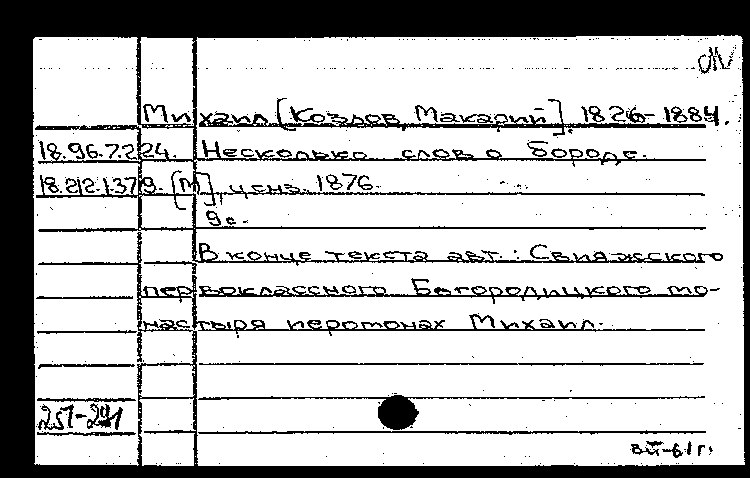 Михаил [Козлов, Макарий], 1826-1884.
18.96.7.224. Несколько слов о бороде.
18.212.1.379. [М], ценз. 1876.
9с.
В конце текста авт.: Свияжского
первоклассного Богородицкого мо-
настыря иеромонах Михаил.
251-291
вй-61г.